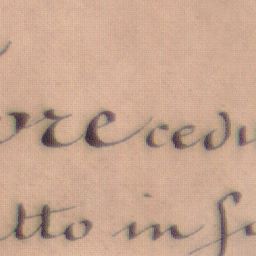 ore cedu
tto in fu